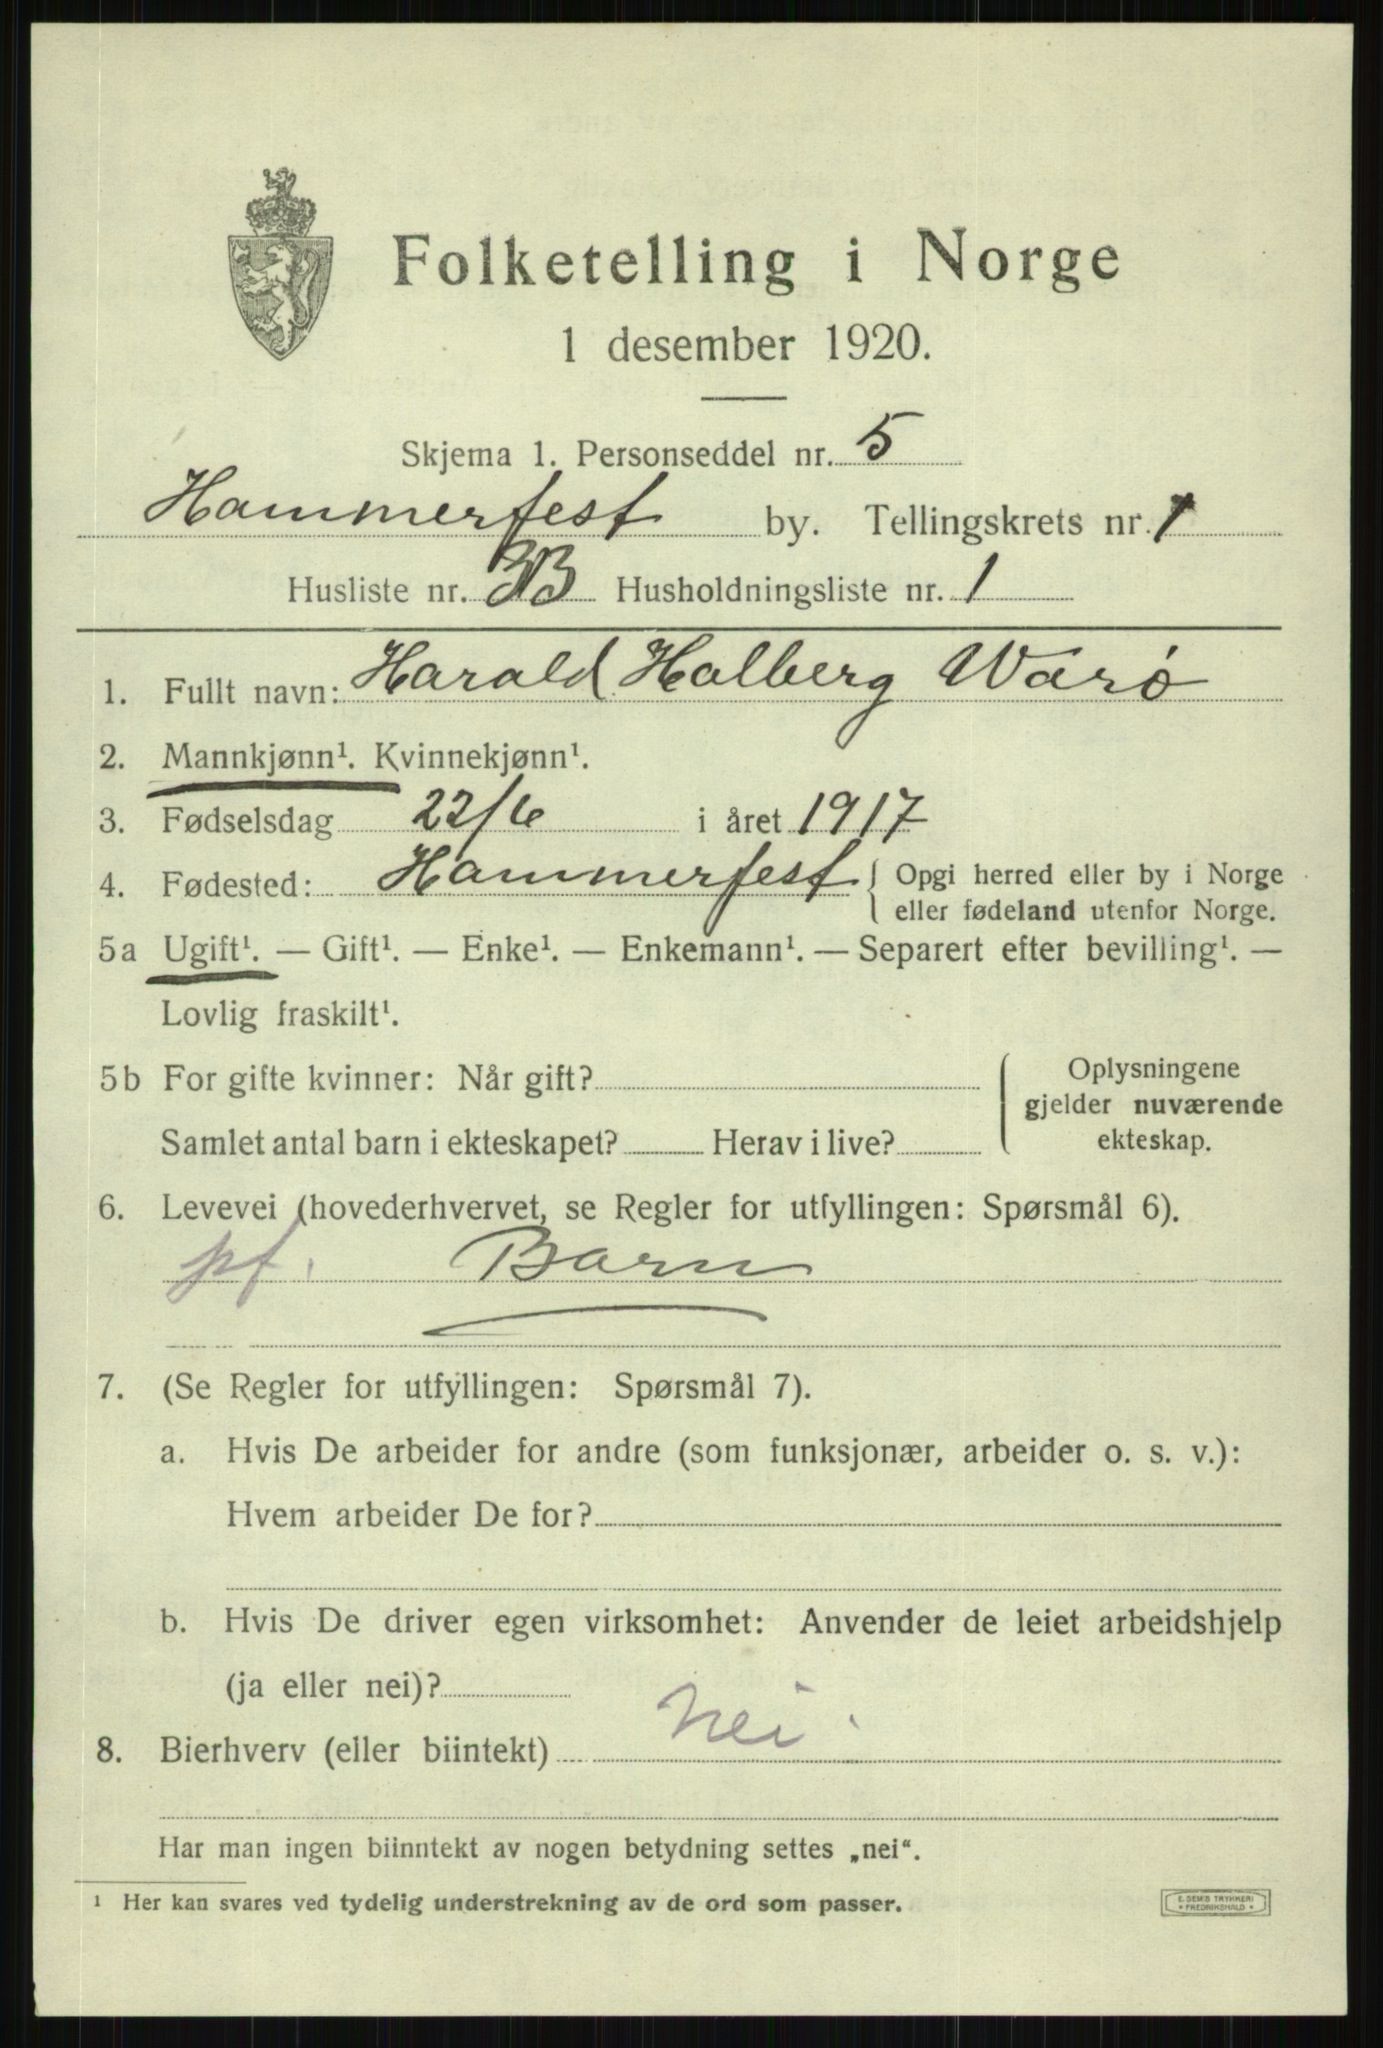 Folketelling i Norge
1 desember 1920.
Skjema 1. Personseddel nr. 5
Hammerfest by. Tellingskrets nr. 1
Husliste nr. 33 Husholdningsliste nr. 1
1. Fullt navn: Harald Halberg Warø
2. Mannkjønn¹. Kvinnekjønn¹.
3. Fødselsdag 22/6 i året 1917
4. Fødested: Hammerfest { Opgi herred eller by i Norge
eller fødeland utenfor Norge.
5a Ugift¹. — Gift¹. — Enke¹. — Enkemann¹. — Separert efter bevilling¹. —
Lovlig fraskilt¹.
5b For gifte kvinner: Når gift? { Oplysningene
gjelder nuværende
Samlet antal barn i ekteskapet? Herav i live? ekteskap.
6. Levevei (hovederhvervet, se Regler for utfyllingen: Spørsmål 6).
pf. Barn
7. (Se Regler for utfyllingen: Spørsmål 7).
a. Hvis De arbeider for andre (som funksjonær, arbeider o. s. v.):
Hvem arbeider De for?
b. Hvis De driver egen virksomhet: Anvender de leiet arbeidshjelp
(ja eller nei)?
8. Bierhverv (eller biintekt) Nei
Har man ingen biinntekt av nogen betydning settes „nei“.
¹ Her kan svares ved tydelig understrekning av de ord som passer.
E. SEM'S TRYKKERI
* FREDRIKSHALD *